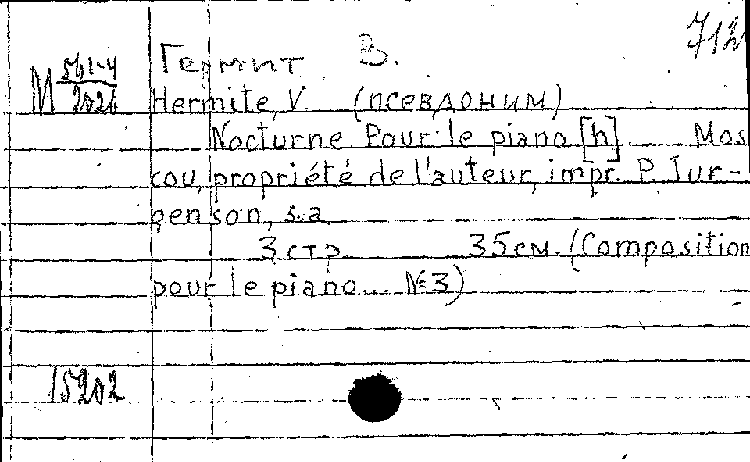 712
Гермит В.
М 561-4
2026
Hermite, V. (псевдоним)
Nocturne Pour le piano [h] Mos
cou, propriété de l'auteur, impr. P. Jur-
genson, s.a
3 стр 35 см. (Composition
pour le piano... № 3)
15202